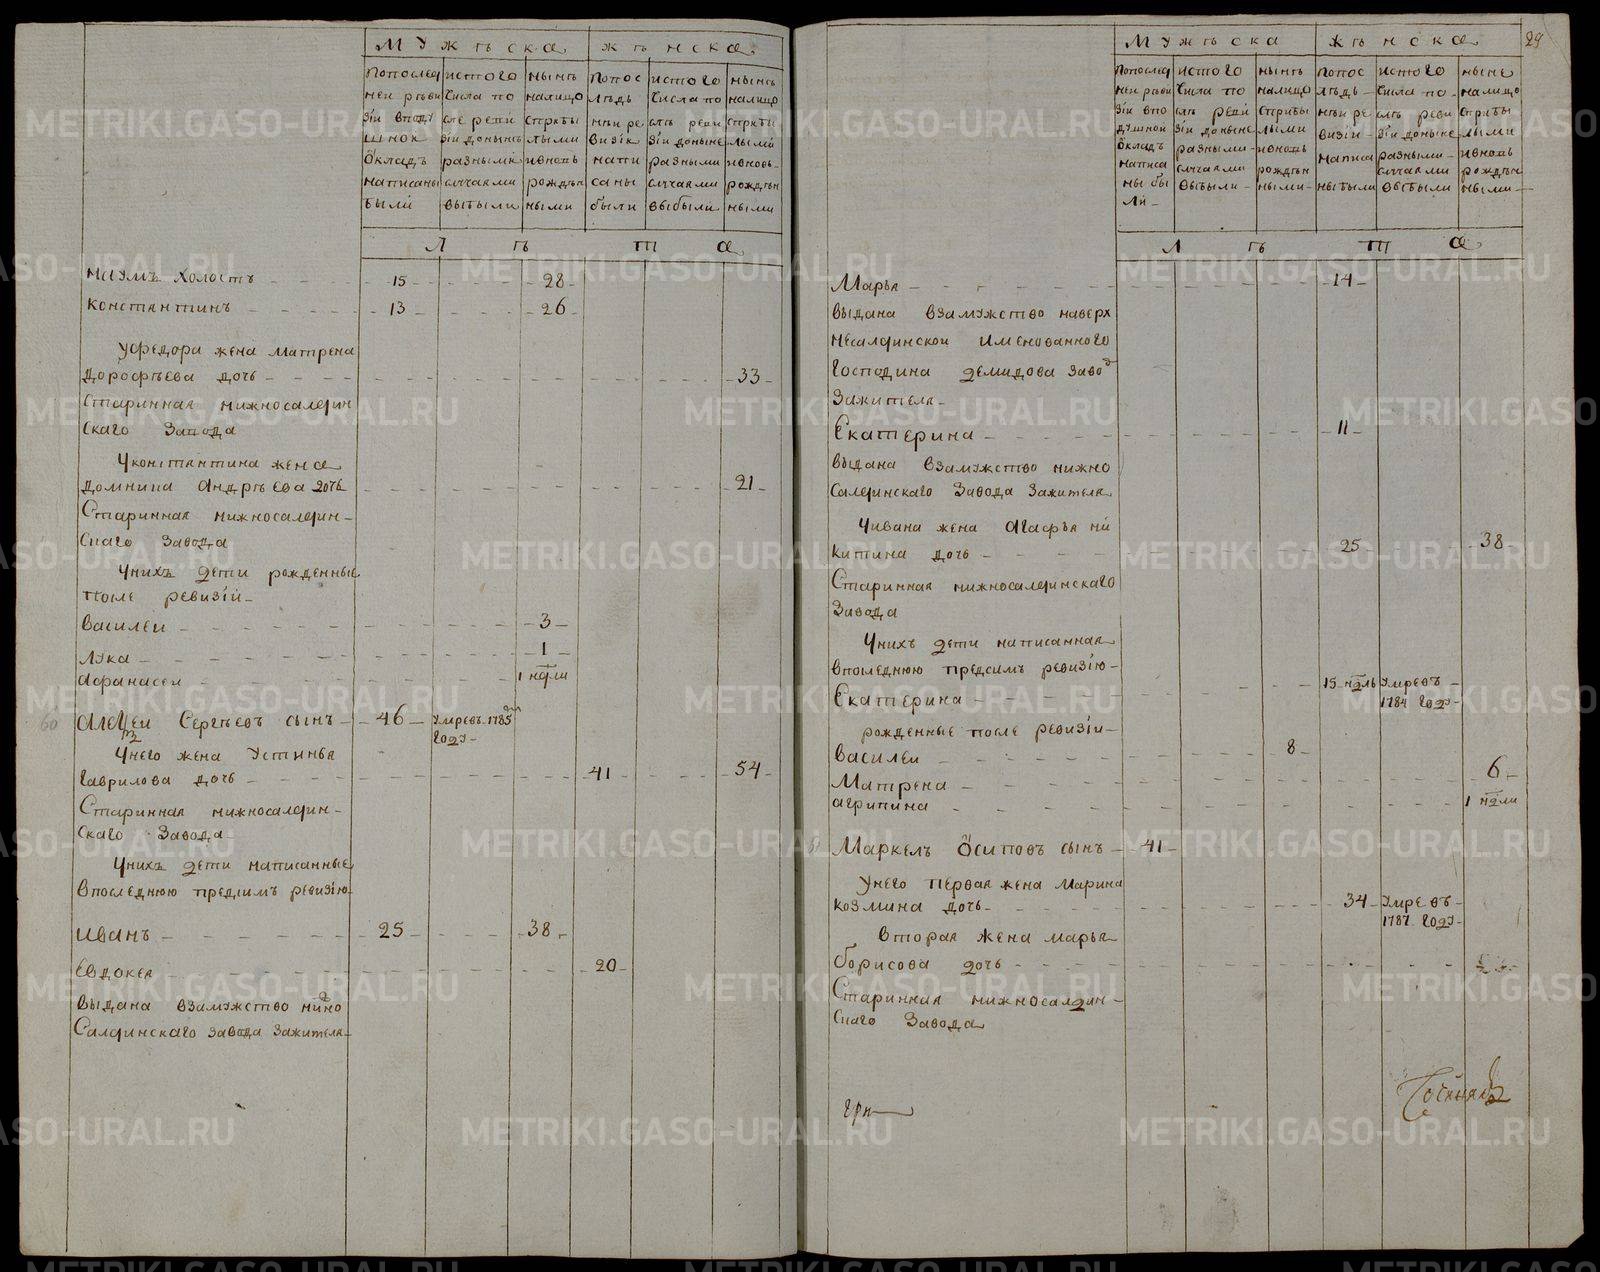 мужеска женска
попослед ней реви зіи вподу шной окладъ написаны были
истого числа по сле реви зіи доныне разными случаями выбыли
ныне налицо спрыбы лыми ивновь рожден ными
попос ледь ней ре визіи напи саны были
истого числа по сле реви зіи доныне разными случаями выбыли
ныне налицо спрыбы лыми ивновь рожден ными
лета
наумъ холостъ 15 28
константинъ 13 26
уфедора жена матрена
дорофеева дочь 33
старинная нижносалдин
скаго завода
уконстантина жена
домнипа андреева дочь 21
старинная нижносалдин
скаго завода
унихъ дети рожденные
после ревизіи
василеи 3
лука 1
афанасеи 1 ндли
60 алеѯеи сергеевъ сынъ 46 умревъ 1785м
году
унего жена устинья
гаврилова дочь 41 54
старинная нижносалдин
скаго завода
унихъ дети написанные
впоследнюю предсимъ ревизію
иванъ 25 38
евдокея 20
выдана взамужство нижно
салдинскаго завода зажителя
29
мужеска женска
попослед ней реви зіи впо душной окладъ написа ны бы ли
истого числа по сле реви зіи доныне разными случаями выбыли
ныне налицо спрыбы лыми ивновь рожден ными
попос ледь ней ре визіи написа ны были
истого числа по сле реви зіи доныне разными случаями выбыли
ныне налицо спрыбы лыми ивновь рожден ными
лета
марья 14
выдана взамужство наверх
несалдинской именованного
господина демидова завод
зажителя
екатерина 11
выдана взамужство нижно
салдинскаго завода зажителя
уивана жена агафья ни
китина дочь 25 38
старинная нижносалдинскаго
завода
унихъ дети написанная
впоследнюю предсимъ ревизію
екатерина 15 нддль умревъ
1784 году
рожденные после ревизіи
василеи 8
матрена 6
агрипина 1 ндли
маркелъ осиповъ сынъ 41
унего первая жена марина
козмина дочь 34 умревъ
1787 году
вторая жена марья
борисова дочь
старинная нижносалдин
скаго завода
METRIKI.GASO-URAL.RU